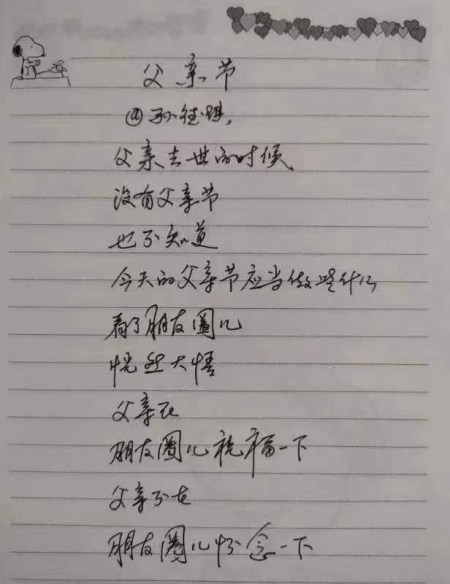 父亲节
@孙继琪,
父亲去世的时候
没有父亲节
也不知道
今天的父亲节应当做些什么
看了朋友圈儿
恍然大悟
父亲在
朋友圈儿祝福一下
父亲不在
朋友圈儿怀念一下